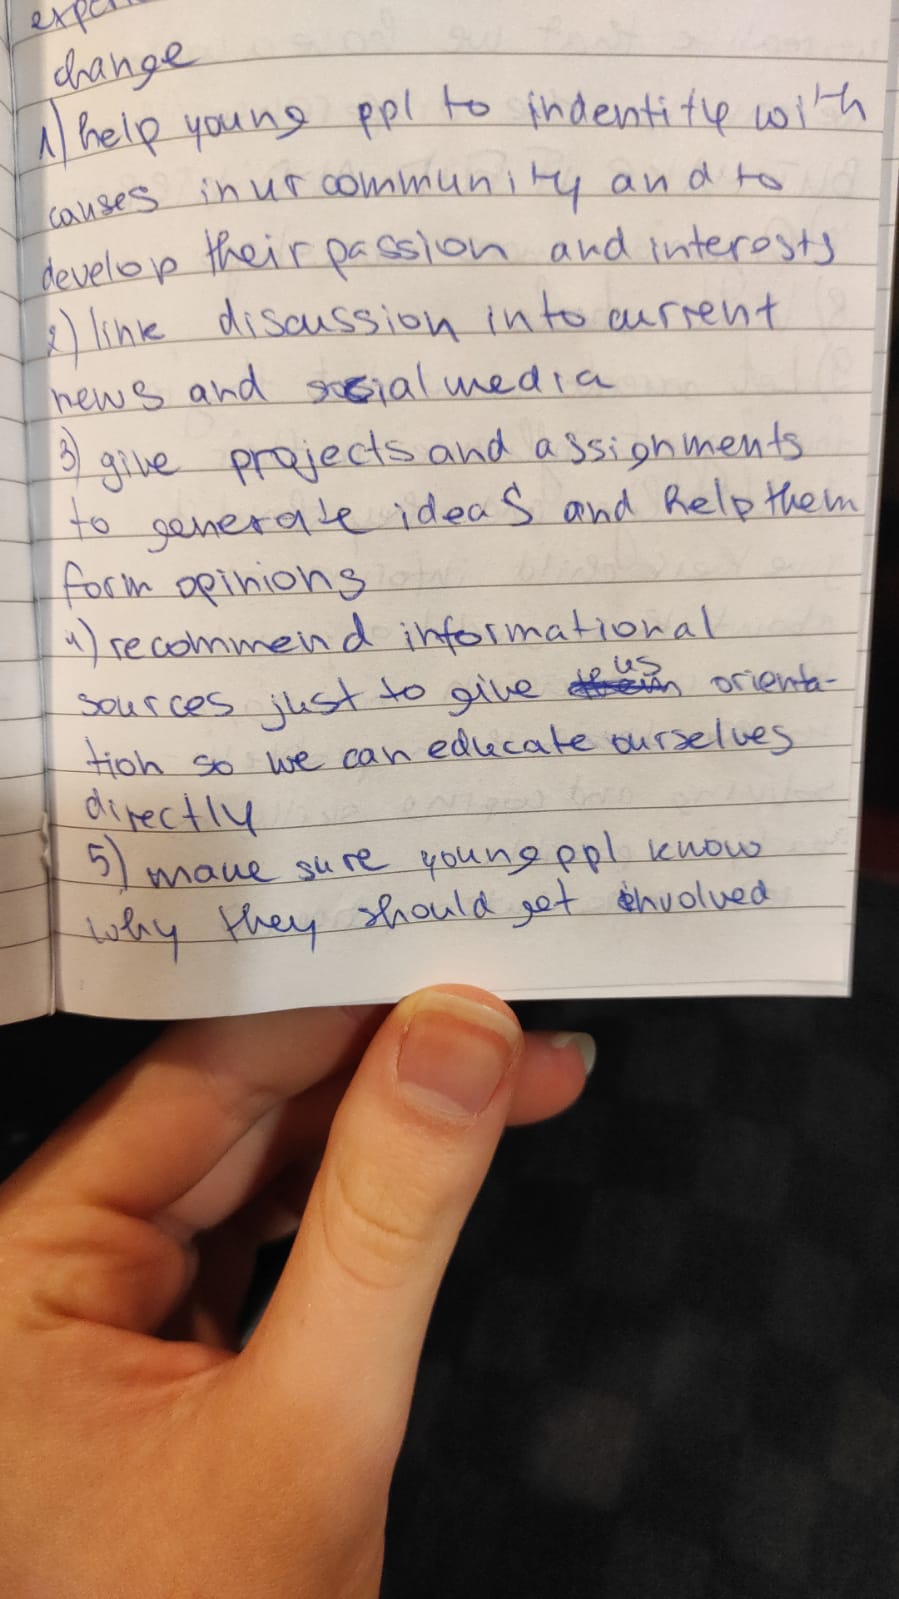 change
1) help young ppl to indentify with
causes in ur community and to
develop their passion and interests
2) link discussion into current
news and social media
3) give projects and assignments
to generate ideas and help them
form opinions
4) recommend informational
sources just to give us orienta-
tion so we can educate ourselves
directly
5) make sure young ppl know
why they should get involved